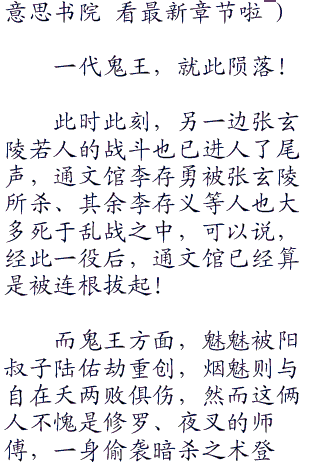 意思书院 看最新章节啦~)
一代鬼王，就此陨落！
此时此刻，另一边张玄
陵若人的战斗也已进人了尾
声，通文馆李存勇被张玄陵
所杀、其余李存义等人也大
多死于乱战之中，可以说，
经此一役后，通文馆已经算
是被连根拔起！
而鬼王方面，魅魅被阳
叔子陆佑劫重创，烟魅则与
自在天两败俱伤，然而这俩
人不愧是修罗、夜叉的师
傅，一身偷袭暗杀之术登